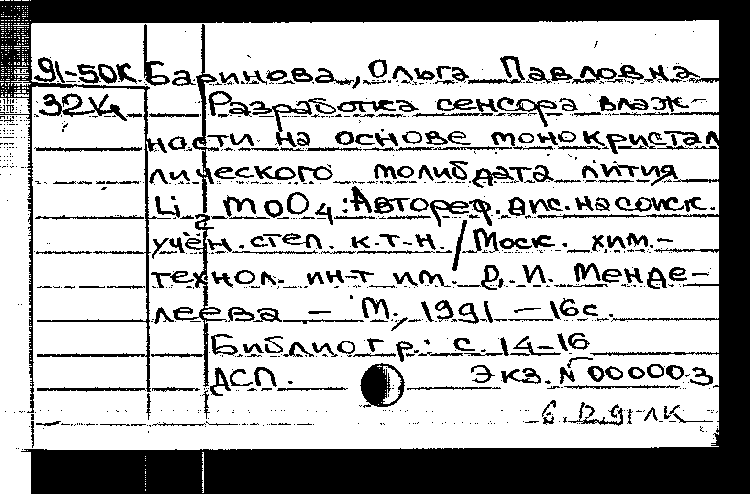 91-50К Баринова, Ольга Павловна
32Ч4 Разработка сенсора влаж-
ности на основе монокристал
лического молибдата лития
Li2 MoO4: Автореф. дис. на соиск.
учён. степ. к.т.н. / Моск. хим.-
технол. ин-т им. Д. И. Менде-
леева. – М., 1991 – 16с.
Библиогр.: с. 14-16
ДСП. Экз. N 000003
6.12.91 ЛК